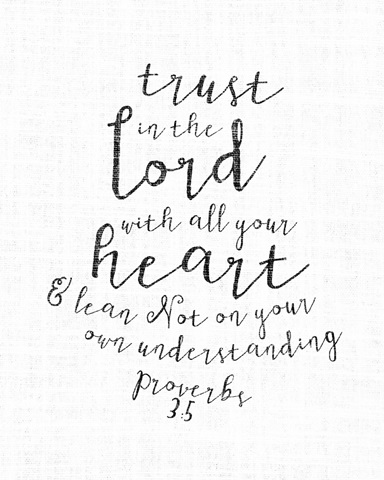 trust
in the
lord
with all your
heart
& lean Not on your
own understanding
proverbs
3:5